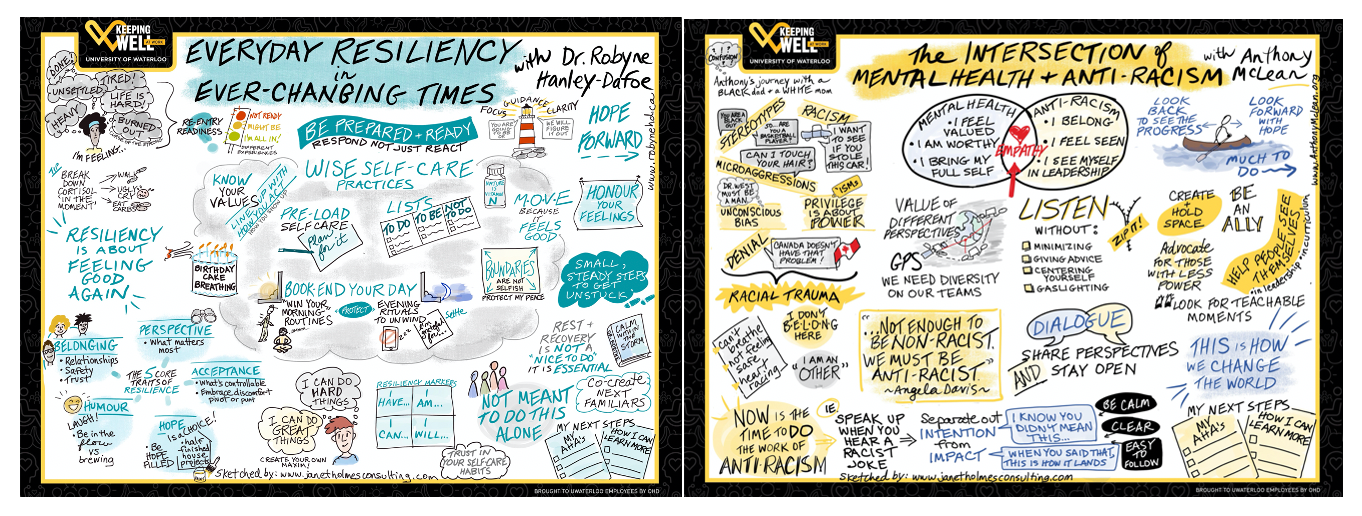 KEEPING
WELL
AT WORK
UNIVERSITY OF WATERLOO
EVERYDAY RESILIENCY
in
EVER-CHANGING TIMES
with Dr. Robyne
Hanley-Dafoe
www.robynehd.ca
DONE!
TIRED!
UNSETTLED
LIFE IS
HARD!
HEAVY
BURNED
OUT
I'M FEELING...
RE-ENTRY
READINESS
NOT READY
MIGHT BE
I'M ALL IN!
DIFFERENT
EXPERIENCES
BE PREPARED + READY
RESPOND NOT JUST REACT
FOCUS
GUIDANCE
CLARITY
YOU ARE
GOING
OF
WE WILL
FIGURE IT
OUT
HOPE
FORWARD
BREAK
DOWN
CORTISOL
'IN THE
MOMENT'
WALK
UGLY
CRY
EAT
CARBS
WISE SELF-CARE
PRACTICES
KNOW
YOUR
VALUES
LINE UP WITH
HOW YOU ACT
PRE-LOAD
SELF CARE
plan
for it
LISTS
TO DO
TO BE
NOT
TO DO
NATURE
IS
VITAMIN
N
M.O.V.E
BECAUSE
IT
FEELS
GOOD
HONOUR
YOUR
FEELINGS
RESILIENCY
IS ABOUT
FEELING
GOOD
AGAIN.
BIRTHDAY
CAKE
BREATHING
BOOK-END YOUR DAY
"WIN YOUR
MORNING"
ROUTINES
PROTECT
EVENING
RITUALS
TO UNWIND
I'm
proud
of
Selfie
BOUNDARIES
ARE NOT
SELFISH
PROTECT MY PEACE
SMALL,
STEADY STEPS
TO GET
UNSTUCK!
BELONGING
• Relationships
• Safety
• Trust
PERSPECTIVE
• What matters
most
THE 5 CORE
TRAITS OF
RESILIENCE
ACCEPTANCE
• What's controllable
• Embrace discomfort
pivot or punt
HUMOUR
LAUGH!
• Be in the
flow
vs
brewing
HOPE
is a CHOICE!
• Be
HOPE
FILLED
• half
finished
house
projects
I CAN DO
HARD
THINGS
I CAN DO
GREAT
THINGS
CREATE YOUR OWN
MAXIM!
RESILIENCY MARKERS
I
HAVE...
I
AM...
I
CAN...
I
WILL...
REST +
RECOVERY
IS NOT A
'NICE TO DO'
IT IS ESSENTIAL
CALM
WITHIN
THE
STORM
NOT MEANT
TO DO THIS
ALONE
Co-create
NEXT
FAMILIARS
TRUST IN
YOUR SELF-CARE
HABITS
MY NEXT STEPS...
MY
AHA's
HOW I CAN
LEARN MORE
Sketched by: www.janetholmesconsulting.com
BROUGHT TO UWATERLOO EMPLOYEES BY OHD
KEEPING
WELL
AT WORK
UNIVERSITY OF WATERLOO
The INTERSECTION of
MENTAL HEALTH + ANTI-RACISM
with Anthony
McLean
www.AnthonyMcLean.org
CONFUSION
Anthony's journey with a
BLACK dad + a WHITE mom
STEREOTYPES
RACISM
YOU ARE A
BLACK
ARE YOU A
BASKETBALL
PLAYER
I WANT
TO SEE
IF YOU
STOLE
THIS CAR!
CAN I TOUCH
YOUR HAIR?
MICROAGGRESSIONS
DR. WEST
MUST BE
A MAN.
'ISMs
UNCONSCIOUS
BIAS
PRIVILEGE
IS ABOUT
POWER
DENIAL
CANADA DOESN'T
HAVE THAT
PROBLEM!
RACIAL TRAUMA
can't
breathe
not feeling
safe
heart
racing
I DON'T
BELONG
HERE
I AM AN
"OTHER"
MENTAL HEALTH
• I FEEL
VALUED
• I AM WORTHY
• I BRING MY
FULL SELF
EMPATHY
ANTI-RACISM
• I BELONG
• I FEEL SEEN
• I SEE MYSELF
IN LEADERSHIP
LOOK
BACK
TO SEE THE
PROGRESS
LOOK
FORWARD
WITH
HOPE
MUCH TO
DO
VALUE OF
DIFFERENT
PERSPECTIVES
GPS
WE NEED DIVERSITY
ON OUR TEAMS
LISTEN
WITHOUT:
MINIMIZING
GIVING ADVICE
CENTERING
YOURSELF
GASLIGHTING
ZIP IT!
CREATE
+
HOLD
SPACE
BE
AN
ALLY
Advocate
FOR THOSE
WITH LESS
POWER
HELP PEOPLE SEE
THEMSELVES
in leadership • in curriculum
LOOK FOR TEACHABLE
MOMENTS
"...NOT ENOUGH TO
BE NON-RACIST.
WE MUST BE
ANTI-RACIST"
~Angela Davis~
DIALOGUE
SHARE PERSPECTIVES
AND STAY OPEN
THIS IS HOW
WE CHANGE
THE WORLD
NOW IS THE
TIME TO DO
THE WORK OF
ANTI-RACISM
IE.
SPEAK UP
WHEN YOU
HEAR A
RACIST
JOKE
Separate out
INTENTION
from
IMPACT
I KNOW YOU
DIDN'T MEAN
THIS...
WHEN YOU SAID THAT,
THIS IS HOW IT LANDS
BE CALM
CLEAR
EASY
TO
FOLLOW
MY NEXT STEPS...
MY
AHA's
HOW I CAN
LEARN MORE
Sketched by: www.janetholmesconsulting.com
BROUGHT TO UWATERLOO EMPLOYEES BY OHD